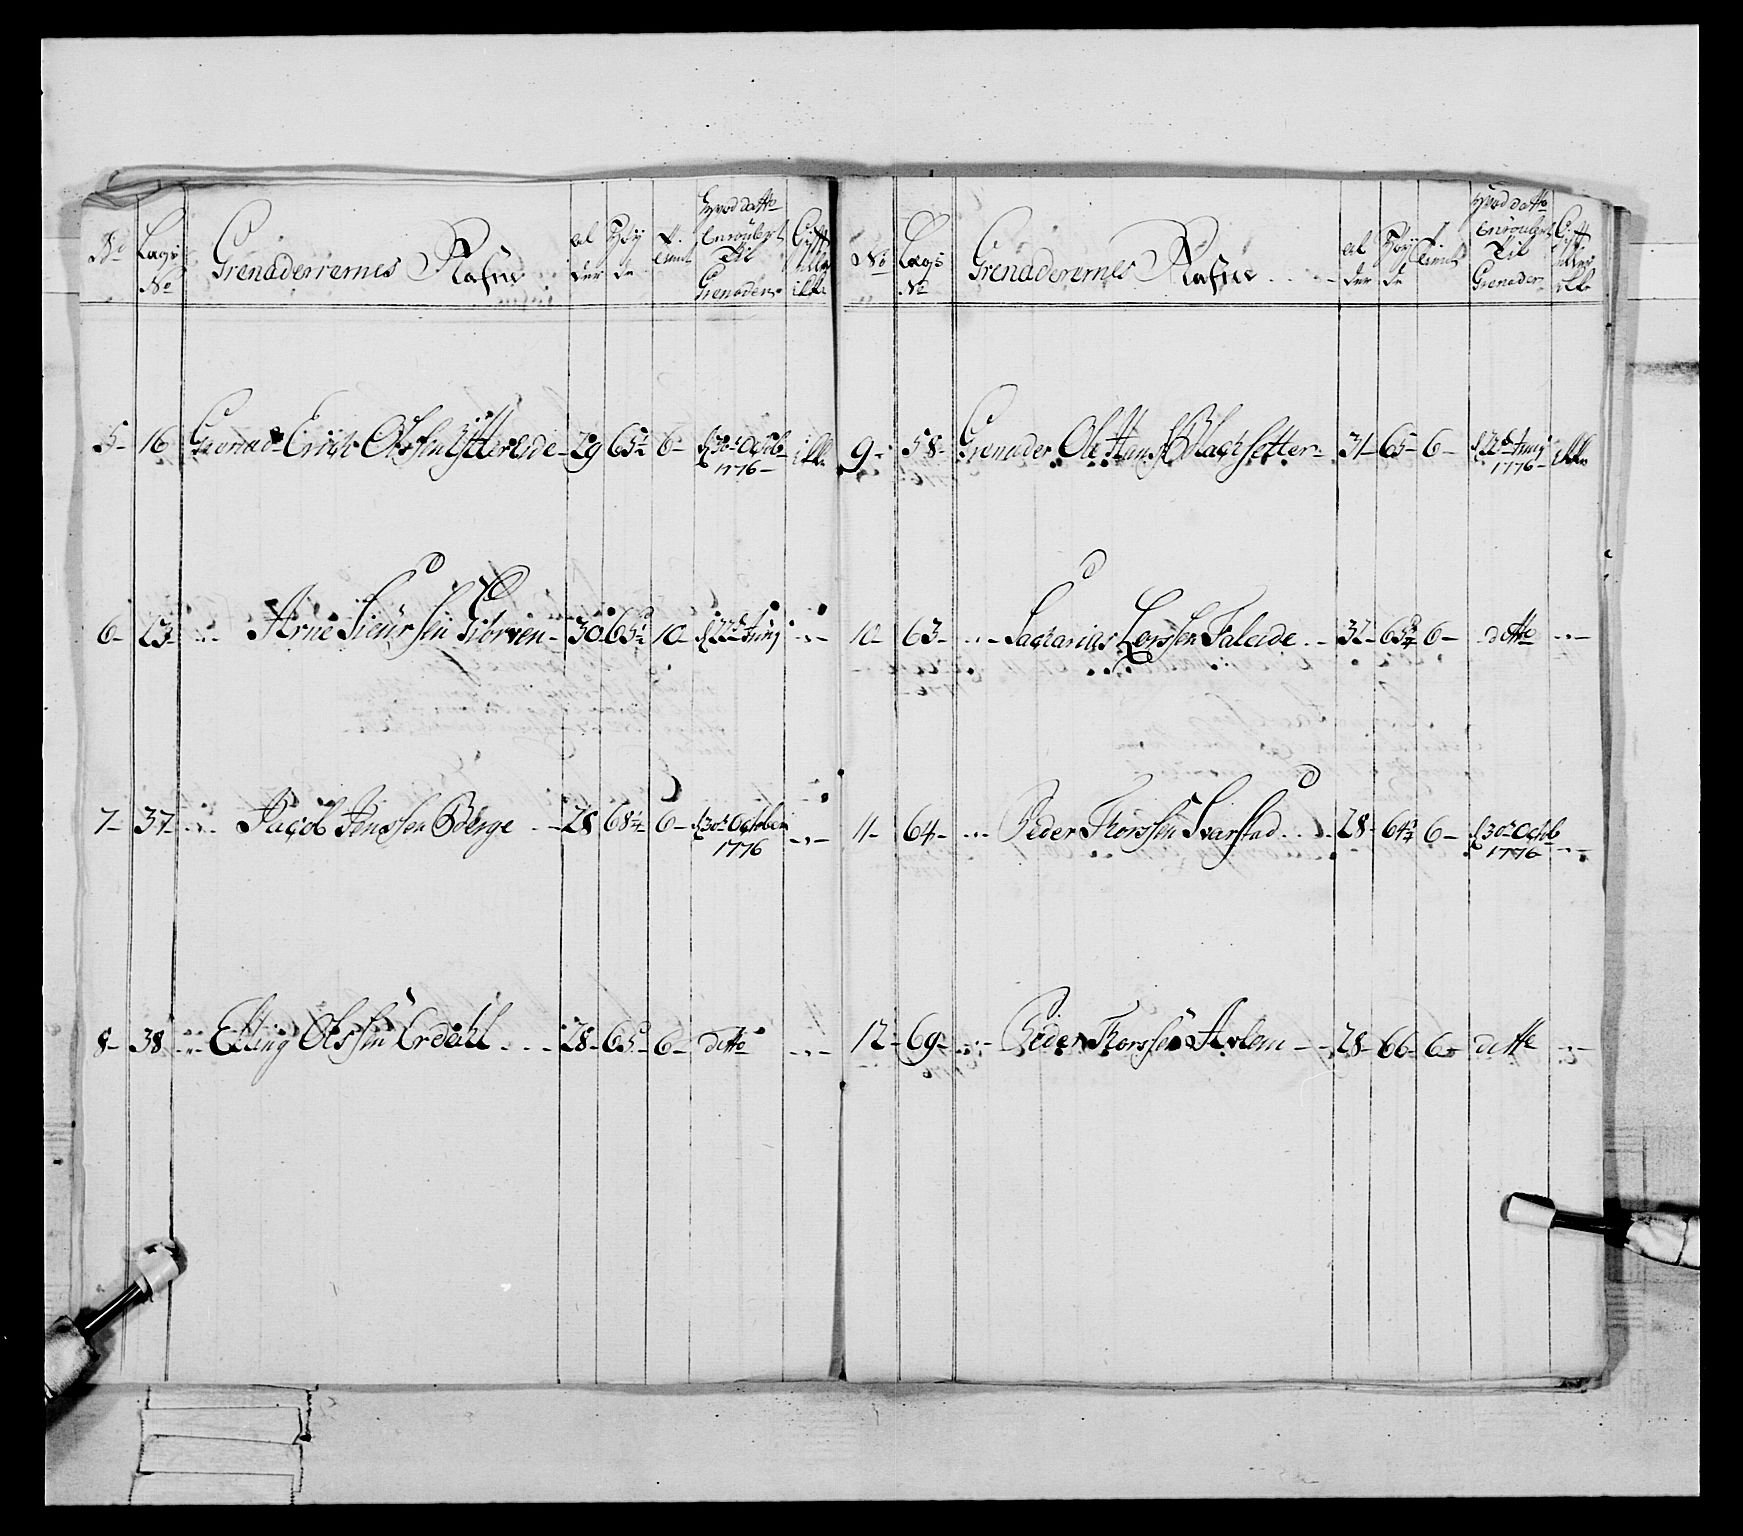 No Lægs No Grenaderrernes Nafne al der Høy de T. tienst Hvad datto Enroulert Til Grenader Gift eller ikke
5- 16 Grenad- Erich Olssen Ytterøde- 29 65½ 6- d 30te Octob 1776- ikke
6- 23- Arne Siurssen Giørven- 30 65½ 10- d 22de Junij
7- 37- Jacob Jenssen Berge - 28 68½ 6- d 30te October 1776
8- 38- Elling Olssen Erdahl - 28- 65 6- ditto
No Lægs No Grenaderernes Nafne al der Høy de tienst Hvad datto Enroulert Til Grenader Gift eller ikke
9- 58- Grenader Ole Hans Blachsetter- 31- 65- 6- d 22de Junij 1776- ikke
10- 63- Sacharias Lorssen Faleide - 32- 65¾ 6- ditto
11- 64- Peder Thorssen Svarstad - 28- 64¾ 6- d 30te Octob 1776
12- 69- Peder Thorssen Arlem - 28- 66- 6- ditto